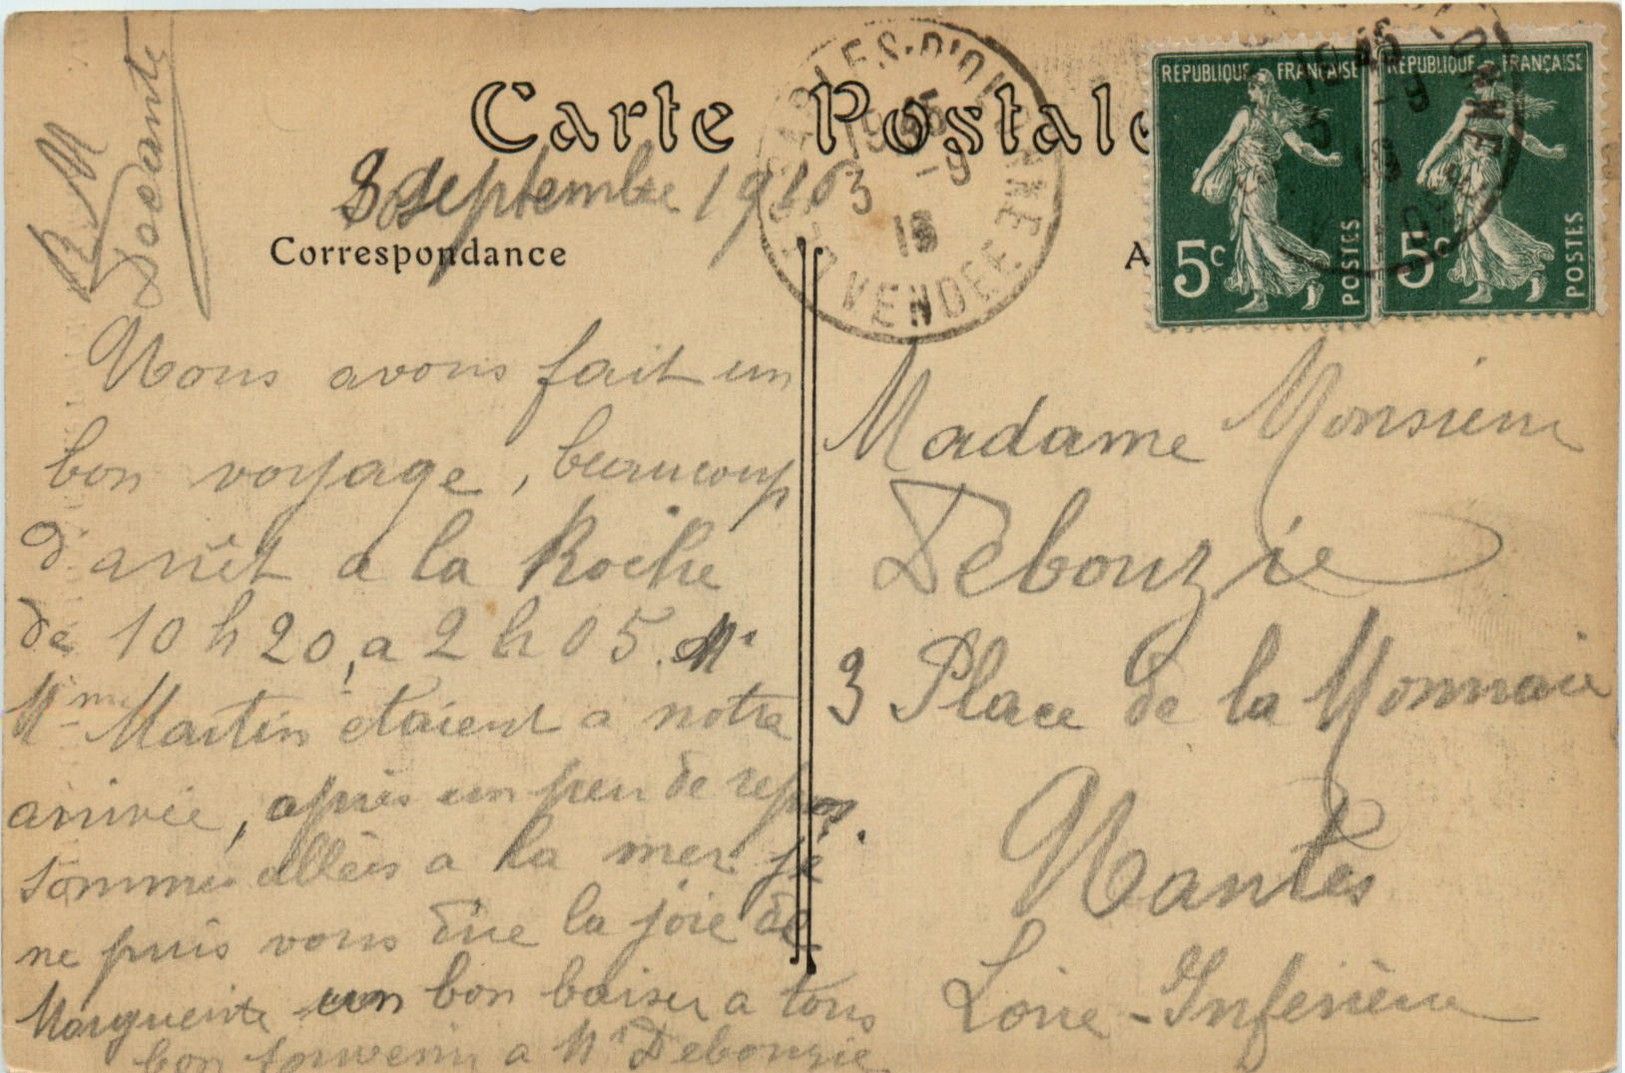 Carte Postale
3 Septembre 1916
Correspondance
B M
Docante
Nous avons fait un
bon voyage, beaucoup
d'arrêt a la Roche
de 10 h 20, a 2 h 05. Mr
Mme Martin étaient a notre
arrivée, après un peu de repos.
sommes allées a la mer je
ne puis vous dire la joie de
Marguerite un bon baiser a tous
bon souvenir a Mr Debouzie
SABLES-D'OLONNE
1945
3 -9
16
VENDEE
REPUBLIQUE FRANÇAISE
5c
POSTES
REPUBLIQUE FRANÇAISE
5c
POSTES
1945
3 -9
16
A
Madame Monsieur
Debouzie
3 Place de la Monnaie
Nantes
Loire-Inférieure